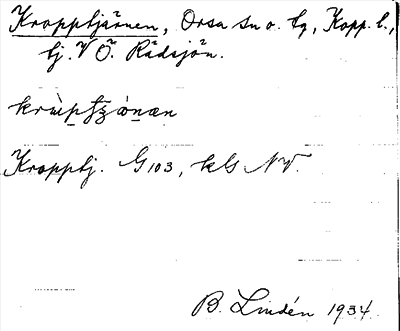 Kropptjärnen, Orsa sn o. tg, Kopp. l.,
tj. V Ö. Rädsjön.
Kropptj. G 103, kls NV.
B. Lindén 1934.